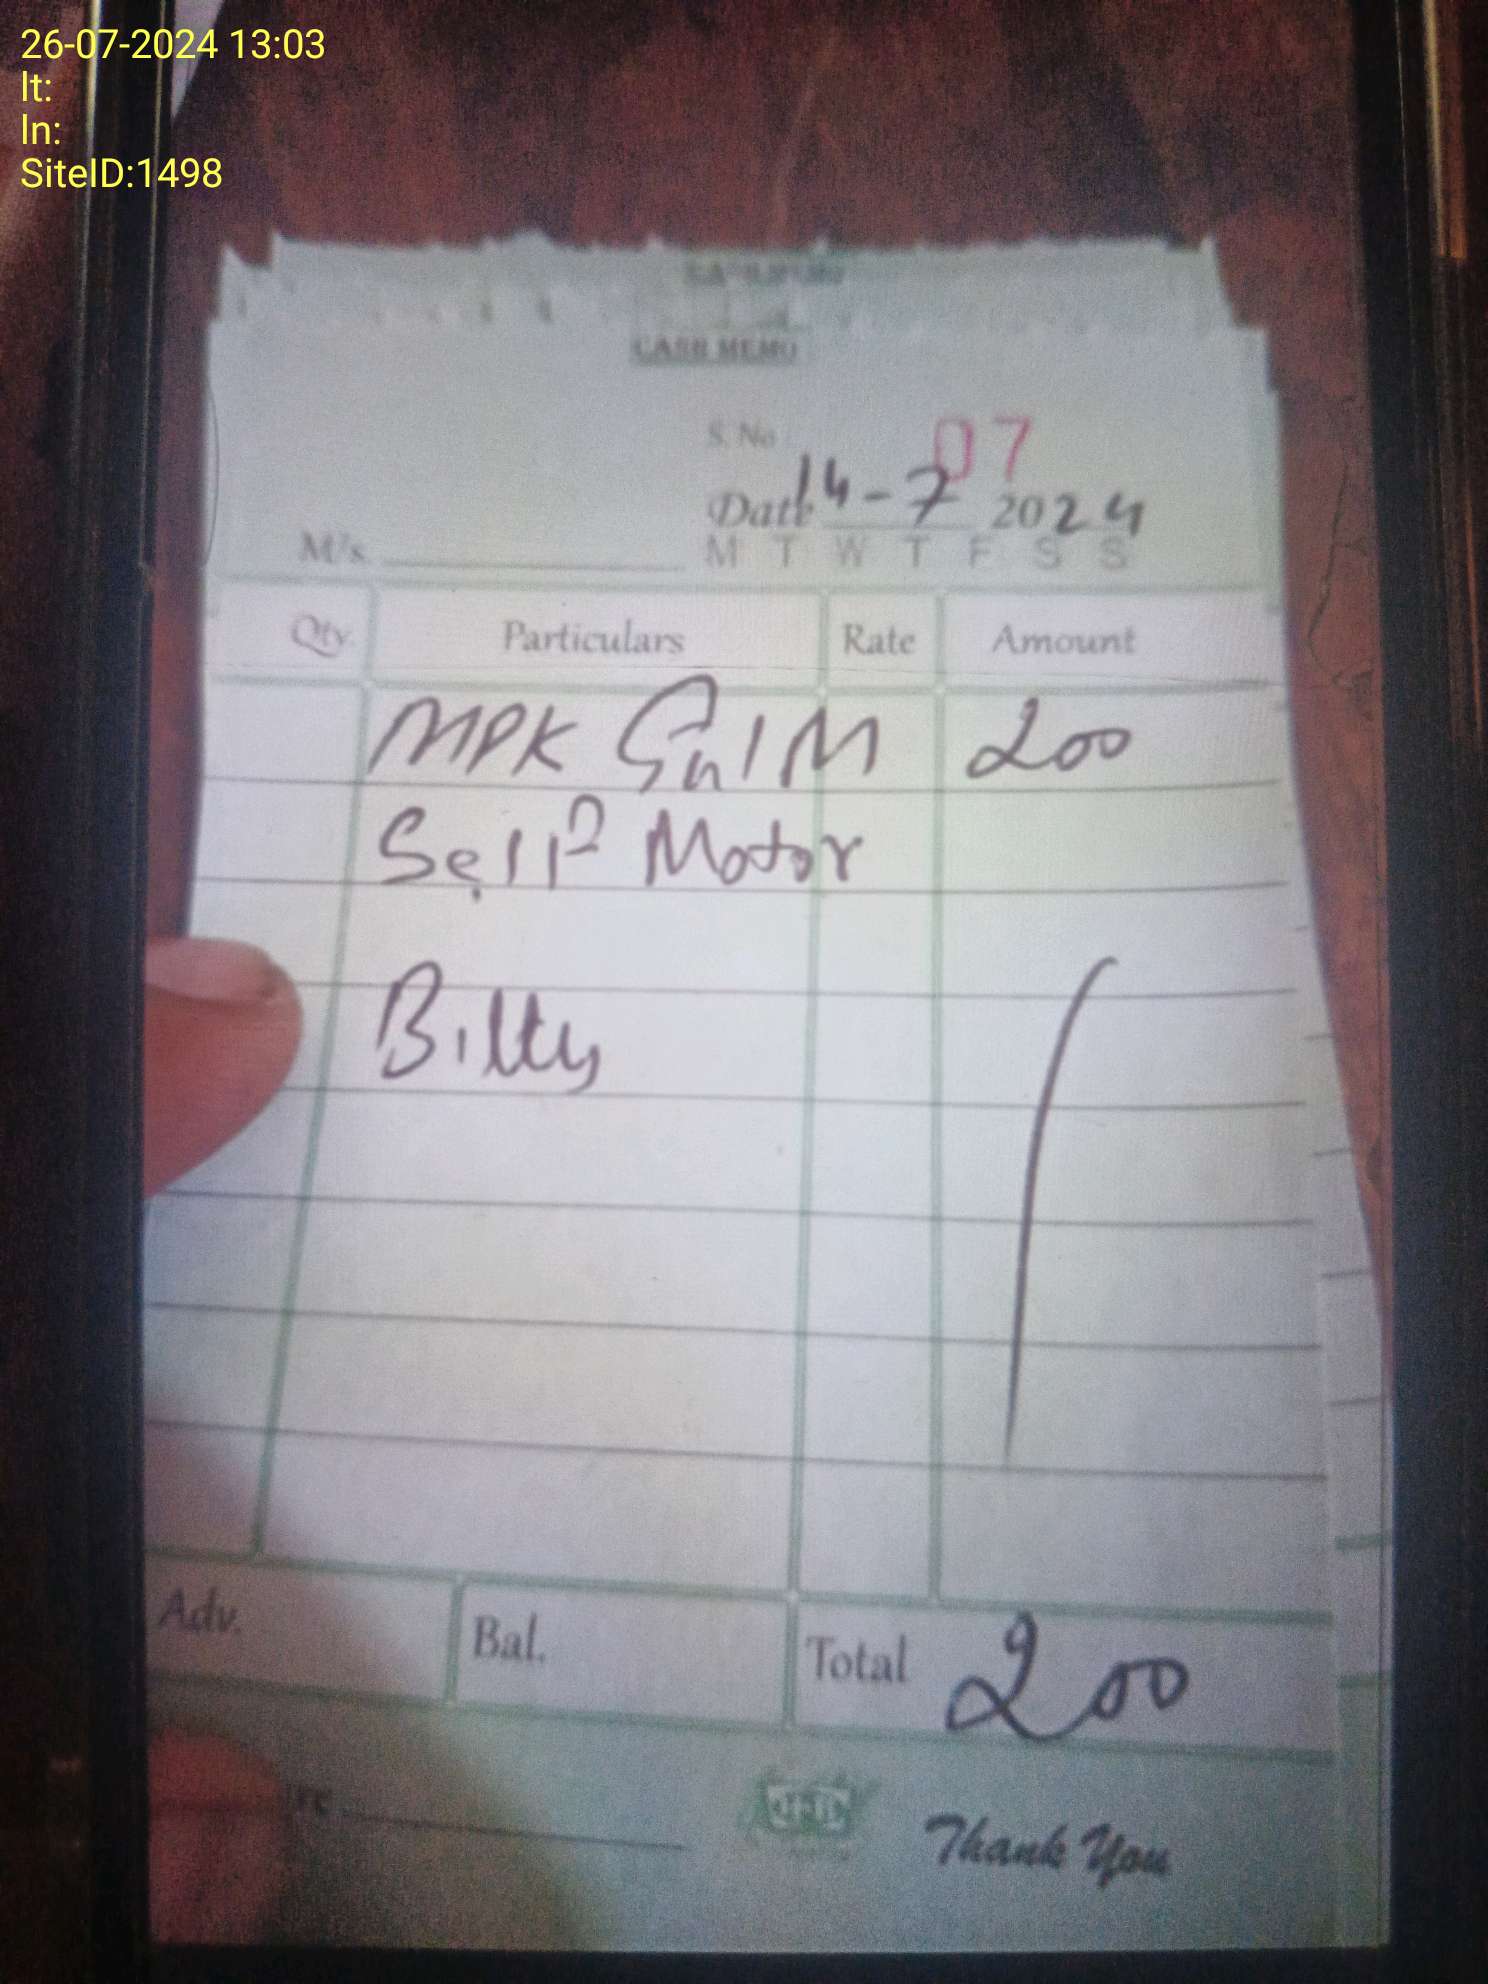 26-07-2024 13:03
lt:
ln:
SiteID:1498
CASH MEMO
S. No 07
Date 14-7 2024
M/s
M T W T F S S
Qty. Particulars Rate Amount
MPK 200
Self Motor
Bilty
Adv. Bal. Total 200
Thank You